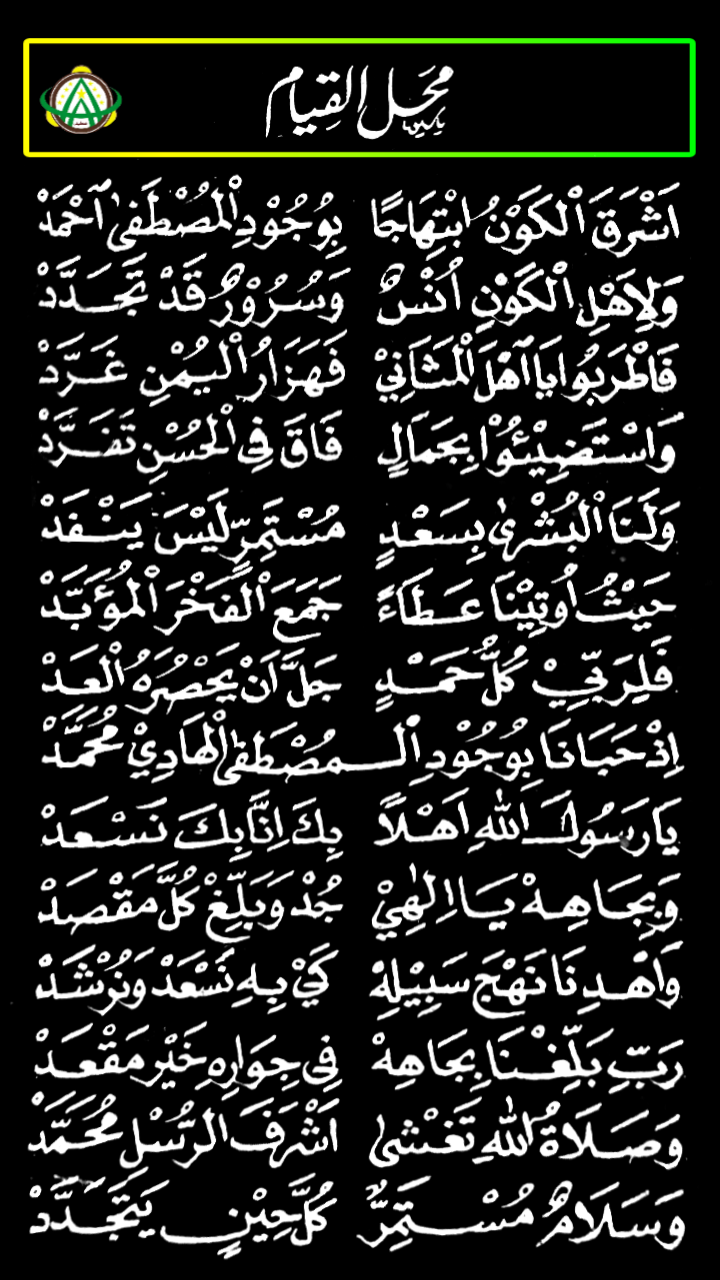 مَحَلُ القِيَام
اَشْرَقَ اَلْكَوْنُ ابْتِهَاجًا بِوُجُوْدِ الْمُصْطَفٰى آحْمَدْ
وَلِاَهْلِ الْكَوْنِ اُنْسٌ وَسُرُوْرٌ قَدْ تَجَدَّدْ
فَاطْرَبُوا يَا اَهْلَ الْمَثَانِيْ فَهَزَارُ الْيُمْنِ غَرَّدْ
وَاسْتَضِيْئُوْا بِجَمَالٍ فَاقَ فِى الْحُسْنِ تَفَرَّدْ
وَلَنَا الْبُشْرٰى بِسَعْدٍ مُسْتَمِرٍّ لَيْسَ يَنْفَدْ
حَيْثُ اُوتِيْنَا عَطَاءً جَمَعَ الْفَخْرَ الْمُؤَبَّدْ
فَلِرَبِّيْ كُلُّ حَمْدٍ جَلَّ اَنْ يَحْصُرَهُ الْعَدْ
اِذْ حَبَانَا بِوُجُوْدِ الْمُصْطَفٰى الْهَادِيْ مُحَمَّدْ
يَا رَسُوْلَ اللهِ اَهْلًا بِكَ اِنَّا بِكَ نَسْعَدْ
وَبِجَاهِهْ يَا اِلٰهِيْ جُدْ وَبَلِّغْ كُلَّ مَقْصَدْ
وَاهْدِنَا نَهْجَ سَبِيْلِهْ كَيْ بِهِ نُسْعَدْ وَنُرْشَدْ
رَبِّ بَلِّغْنَا بِجَاهِهْ فِى جِوَارِهِ خَيْرَ مَقْعَدْ
وَصَلَاةُ اللهِ تَغْشٰى اَشْرَفَ الرُّسْلِ مُحَمَّدْ
وَسَلَامٌ مُسْتَمِرٌّ كُلَّ حِيْنٍ يَتَجَدَّدْ